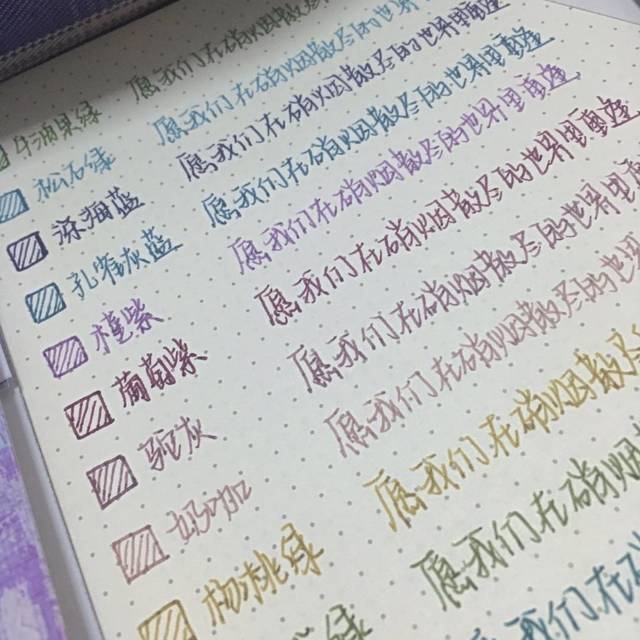 牛油果绿 愿我们在硝烟散尽的世界里重逢
松石绿 愿我们在硝烟散尽的世界里重逢
深海蓝 愿我们在硝烟散尽的世界里重逢
孔雀灰蓝 愿我们在硝烟散尽的世界里重逢
槿紫 愿我们在硝烟散尽的世界里重逢
葡萄紫 愿我们在硝烟散尽的世界里重逢
驼灰 愿我们在硝烟散尽的世界里
奶咖 愿我们在硝烟散尽的世
愿我们在硝烟散尽
绿 愿我们在硝烟
愿我们在